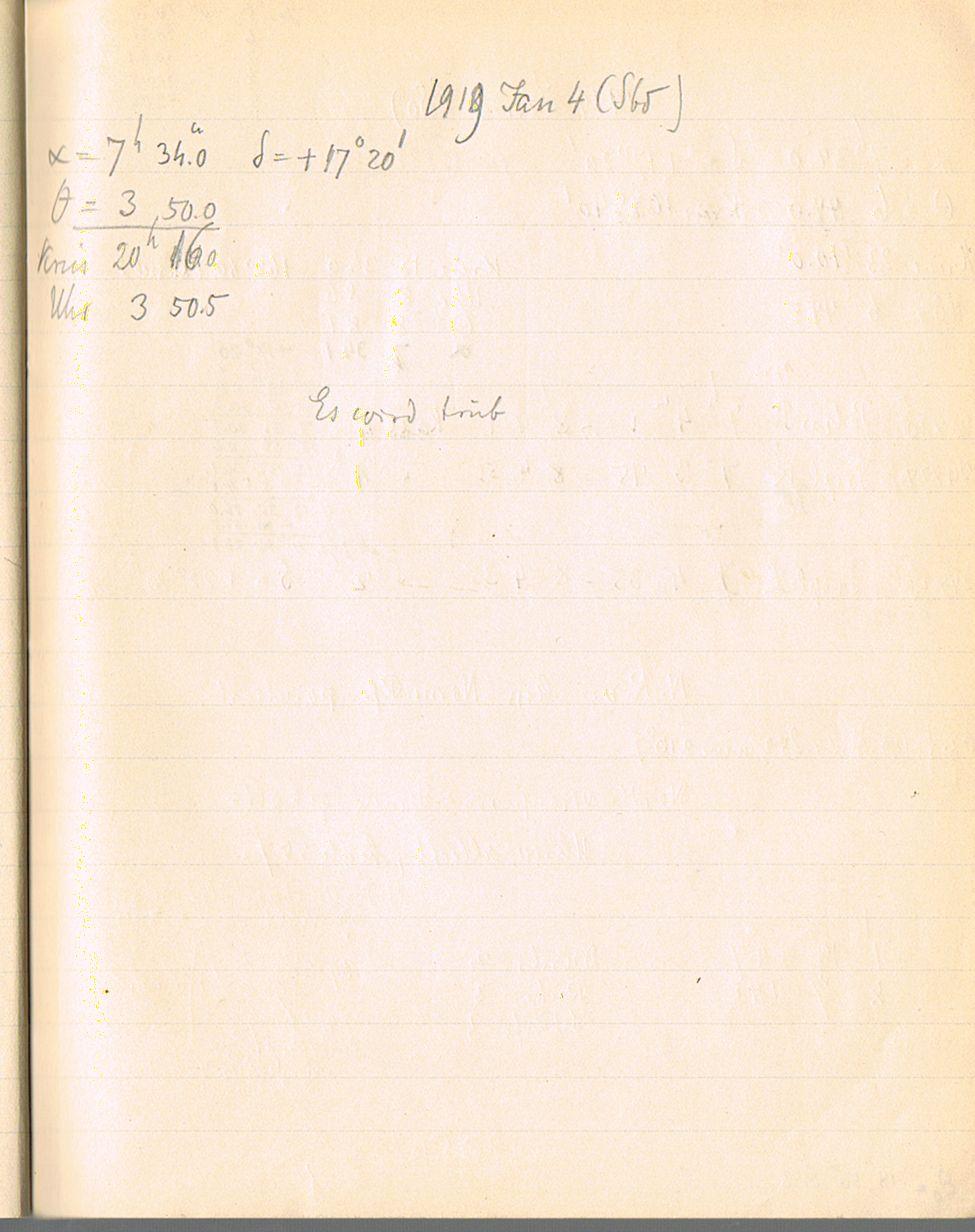 1919 Jan 4 (Sbd)
α = 7ʰ 34.0ᵐ δ = +17° 20'
θ = 3 50.0
Kreis 20ʰ 16.0
Uhr 3 50.5
Es wird trüb